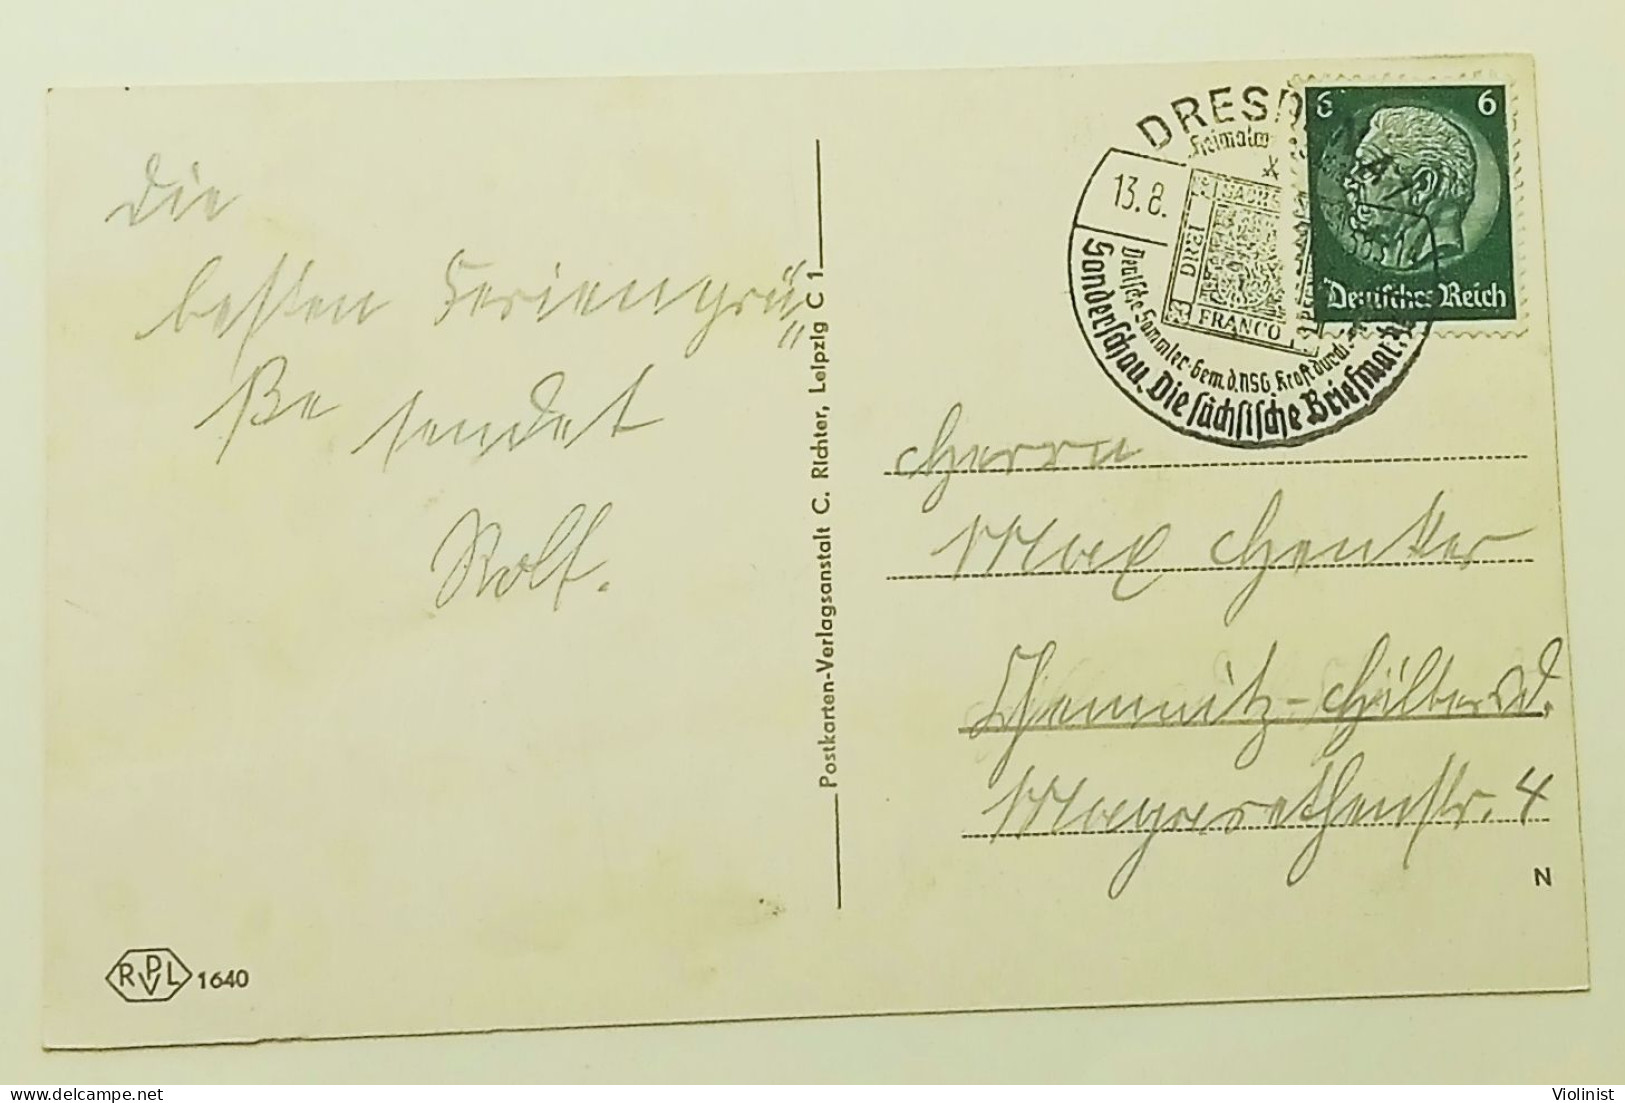 Die
besten Feriengrü
ße sendet
Rolf.
Postkarten-Verlagsanstalt C. Richter, Leipzig C 1
RPVL 1640
DRESD
Heimatw
13.8.
SACHS
DREI
FRANCO
Deutsche-Sammler-Gem.d.NSG. Kraft durch
Sonderschau. Die sächsische Briefmarke
6 6
Deutsches Reich
Herrn
Max
Chemnitz-Hilbersd.
Margarethenstr. 4
N
Violinist